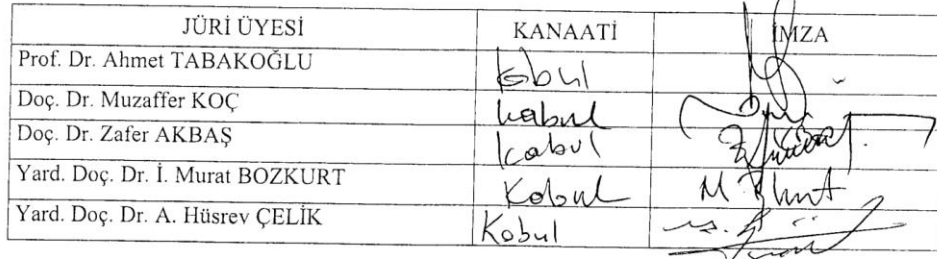 JÜRİ ÜYESİ KANAATİ İMZA
Prof. Dr. Ahmet TABAKOĞLU kabul
Doç. Dr. Muzaffer KOÇ kabul
Doç. Dr. Zafer AKBAŞ kabul
Yard. Doç. Dr. İ. Murat BOZKURT Kabul
Yard. Doç. Dr. A. Hüsrev ÇELİK Kabul